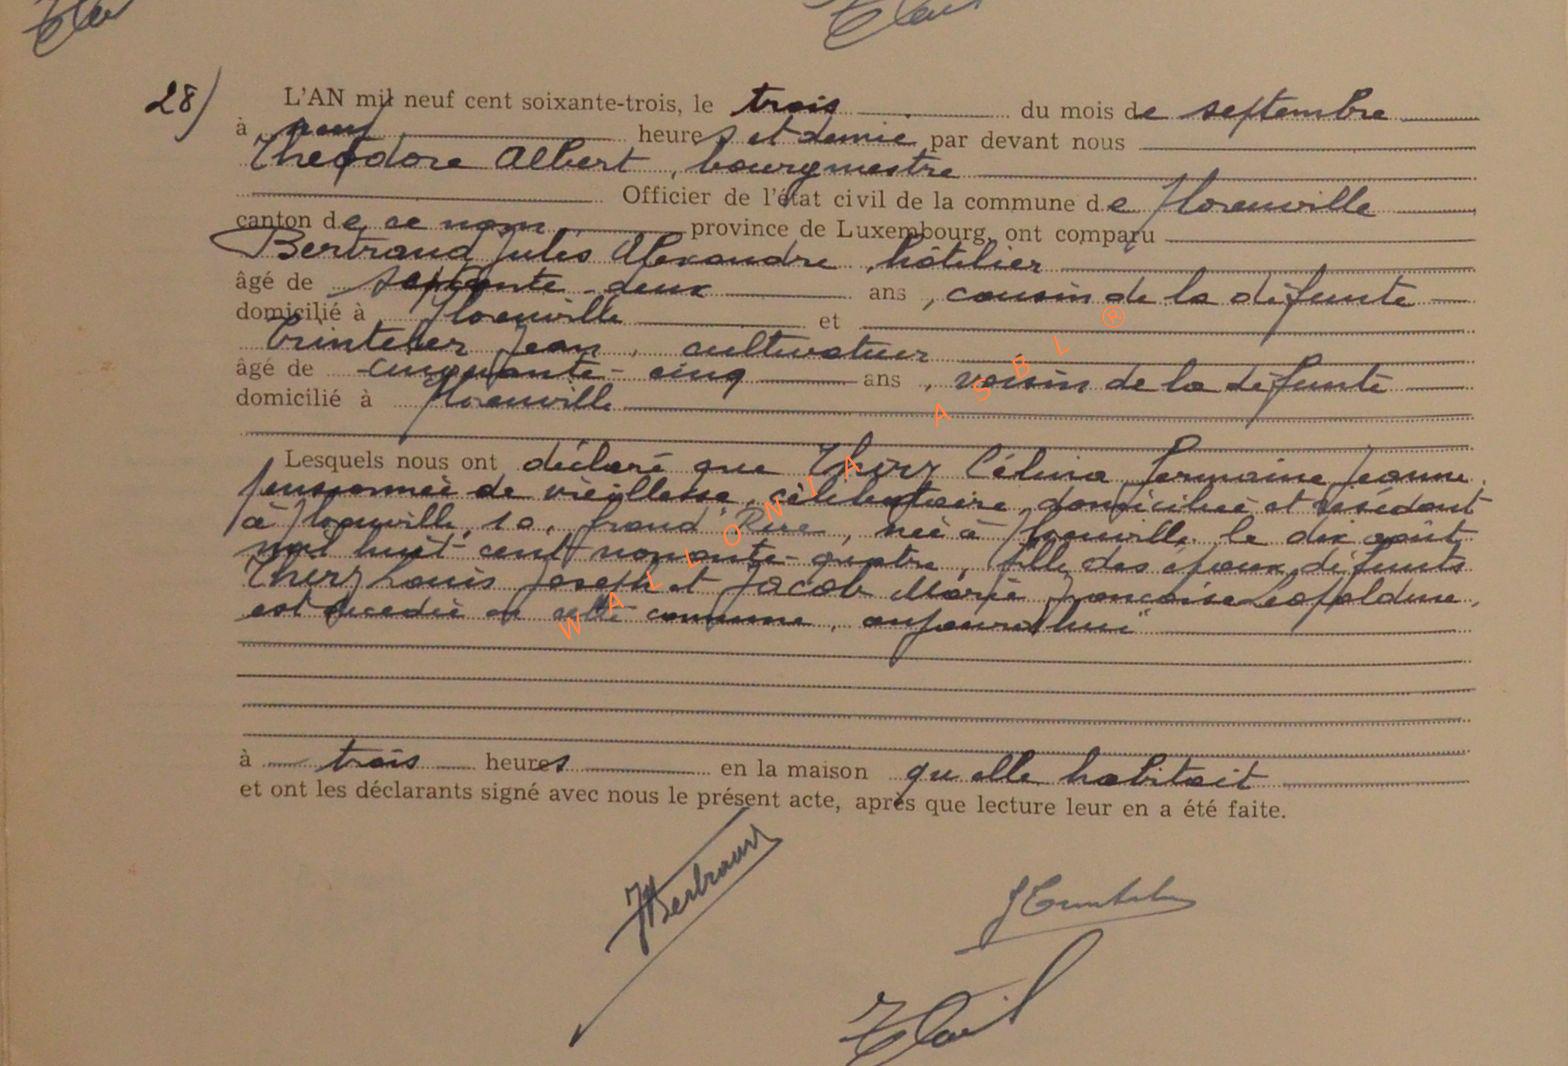 28)
L'AN mil neuf cent soixante-trois, le trois du mois de septembre
à neuf heures et demie par devant nous
Théodore Albert, bourgmestre
Officier de l'état civil de la commune de Florenville
canton de ce nom, province de Luxembourg, ont comparu
Bertrand Jules Alexandre, hôtelier
âgé de septante-deux ans, cousin de la défunte
domicilié à Florenville et
Trinteler Jean, cultivateur
âgé de cinquante-cinq ans, voisin de la défunte
domicilié à Florenville
Lesquels nous ont déclaré que Célina Germaine Jeanne,
pensionnée de vieillesse, célibataire, domiciliée et résidant
à Florenville, 10, née à Florenville le dix août
mil huit-cent-nonante-quatre, fille des époux défunts
Louis Joseph et Jacob Marie Françoise Léopoldine,
est décédée en cette commune, aujourd'hui
à trois heures en la maison qu'elle habitait
et ont les déclarants signé avec nous le présent acte, après que lecture leur en a été faite.
JBertrand
WALLONIA ASBL ®